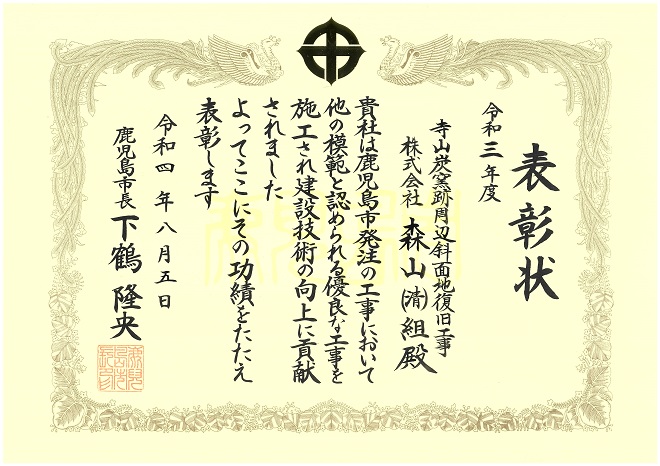 表彰状
令和三年度
寺山炭窯跡周辺斜面地復旧工事
株式会社 森山(清)組殿
貴社は鹿児島市発注の工事において
他の模範と認められる優良な工事を
施工され建設技術の向上に貢献
されました
よってここにその功績をたたえ
表彰します
令和四年八月五日
鹿児島市長 下鶴隆央